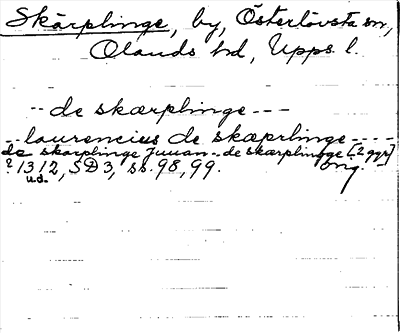 Skärplinge, by, Österlövsta sn,
Olands hd, Upps. l.
-- de skærplinge ---
-- laurencius de skæprlinge ----
de skærplinge Juuan -- de skærplingge [2 ggr]
? 1312, SD3, ss. 98, 99. orig.
u.d.